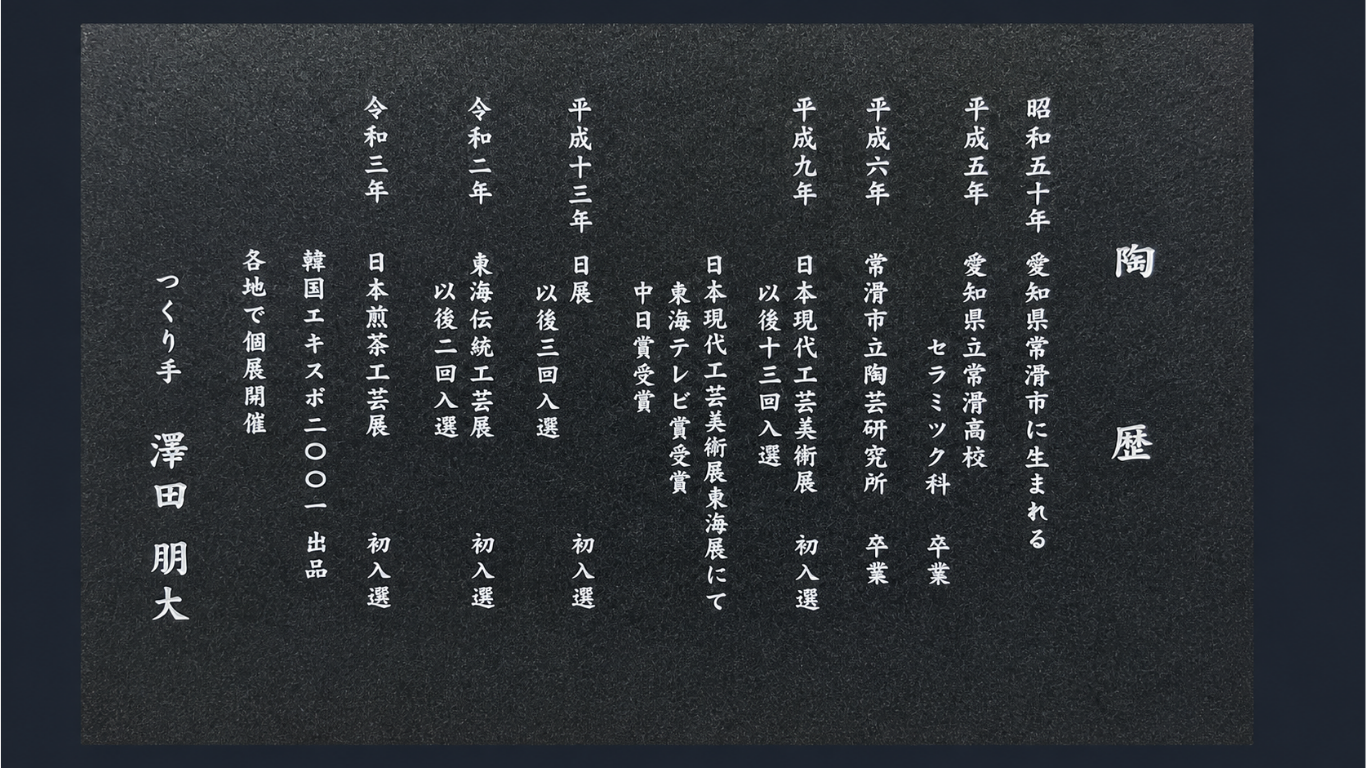 陶歴
昭和五十年 愛知県常滑市に生まれる
平成五年 愛知県立常滑高校
セラミック科 卒業
平成六年 常滑市立陶芸研究所 卒業
平成九年 日本現代工芸美術展 初入選
以後十三回入選
日本現代工芸美術展東海展にて
東海テレビ賞受賞
中日賞受賞
平成十三年 日展 初入選
以後三回入選
令和二年 東海伝統工芸展 初入選
以後二回入選
令和三年 日本煎茶工芸展 初入選
韓国エキスポ二〇〇一 出品
各地で個展開催
つくり手 澤田 朋大